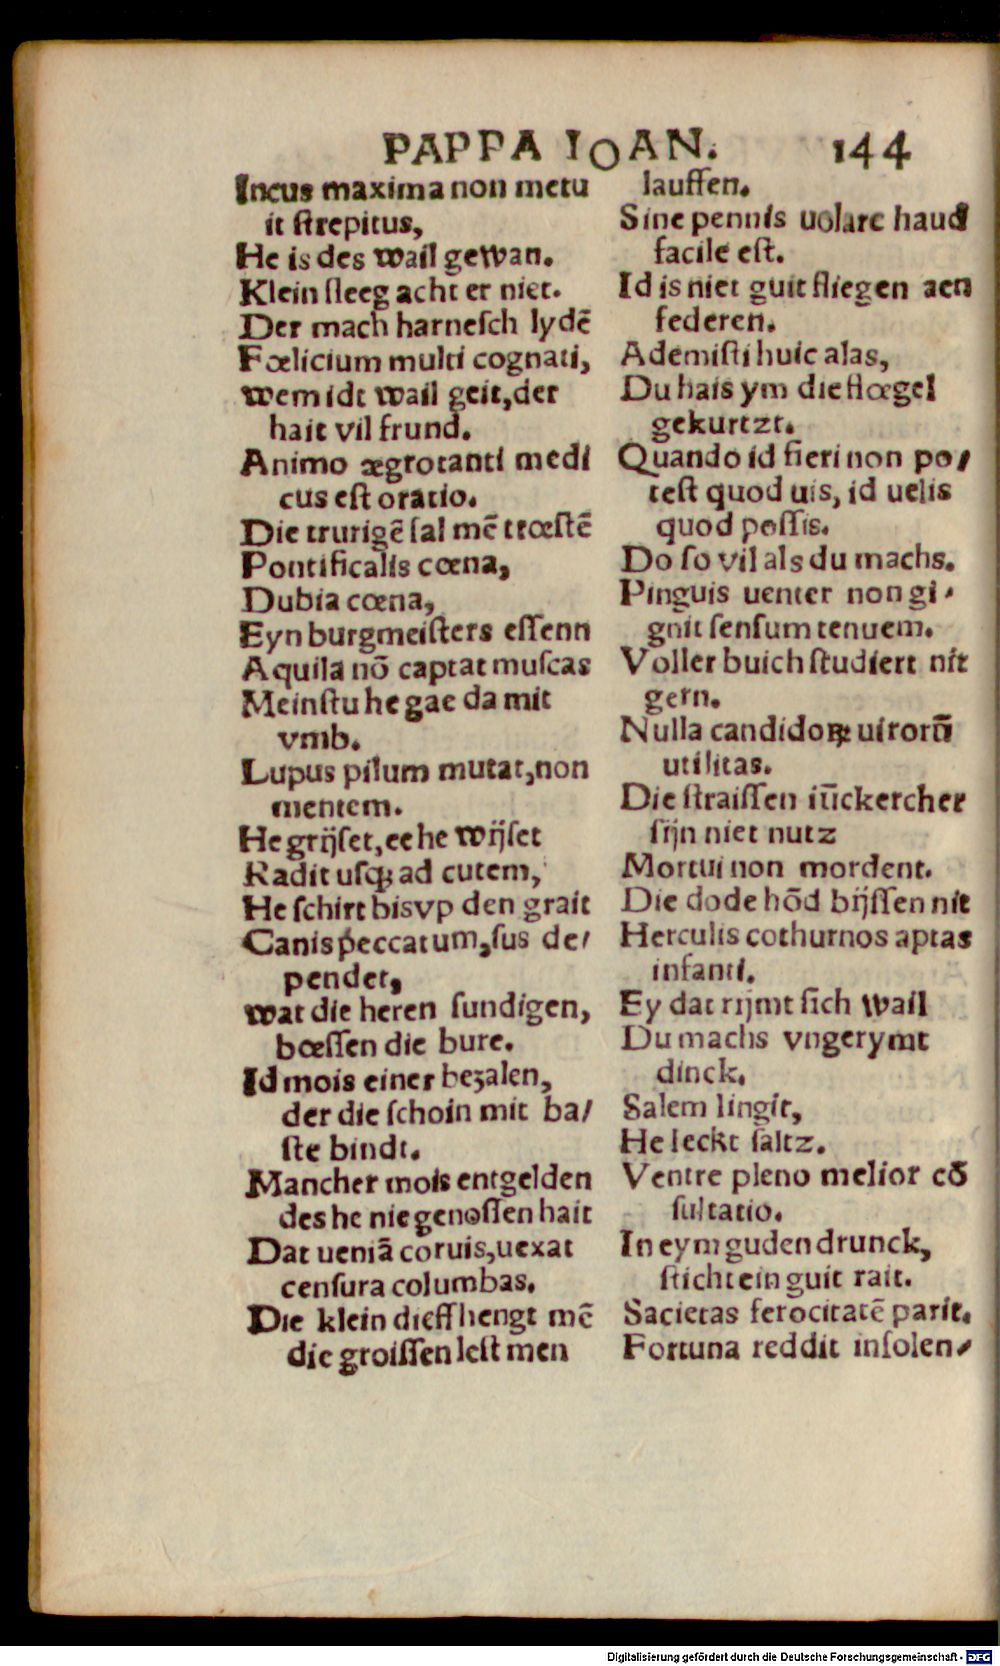 PAPPA IOAN. 144
Incus maxima non metu
it ſtrepitus,
He is des wail gewan.
Klein ſleeg acht er niet.
Der mach harneſch lydē
Fœlicium multi cognati,
wem idt wail geit, der
hait vil frund.
Animo ægrotanti medi
cus eſt oratio.
Die trurigē ſal mē trœſtē
Pontificalis cœna,
Dubia cœna,
Eyn burgmeiſters eſſenn
Aquila nō captat muſcas
Meinſtu he gae da mit
vmb.
Lupus pilum mutat, non
mentem.
He grijſet, ee he wijſet
Radit uſq; ad cutem,
He ſchirt bis vp den grait
Canis peccatum, ſus de/
pendet,
wat die heren ſundigen,
bœſſen die bure.
Id mois einer beʒalen,
der die ſchoin mit ba/
ſte bindt.
Mancher mois entgelden
des he nie genoſſen hait
Dat ueniā coruis, uexat
cenſura columbas.
Die klein dieff hengt mē
die groiſſen leſt men
lauffen.
Sine pennis uolare haud
facile eſt.
Id is niet guit fliegen aen
federen.
Ademiſti huic alas,
Du hais ym die flœgel
gekurtzt.
Quando id fieri non po/
teſt quod uis, id uelis
quod poſſis.
Do ſo vil als du machs.
Pinguis uenter non gi/
gnit ſenſum tenuem.
Voller buich ſtudiert nit
gern.
Nulla candidoꝝ uirorū
utilitas.
Die ſtraiſſen iūckercher
ſijn niet nutz
Mortui non mordent.
Die dode hōd bijſſen nit
Herculis cothurnos aptas
infanti.
Ey dat rijmt ſich wail
Du machs vngerymt
dinck.
Salem lingit,
He leckt ſaltz.
Ventre pleno melior cō
ſultatio.
In eym guden drunck,
ſticht ein guit rait.
Sacietas ferocitatē parit.
Fortuna reddit inſolen/
Digitalisierung gefördert durch die Deutsche Forschungsgemeinschaft - DFG